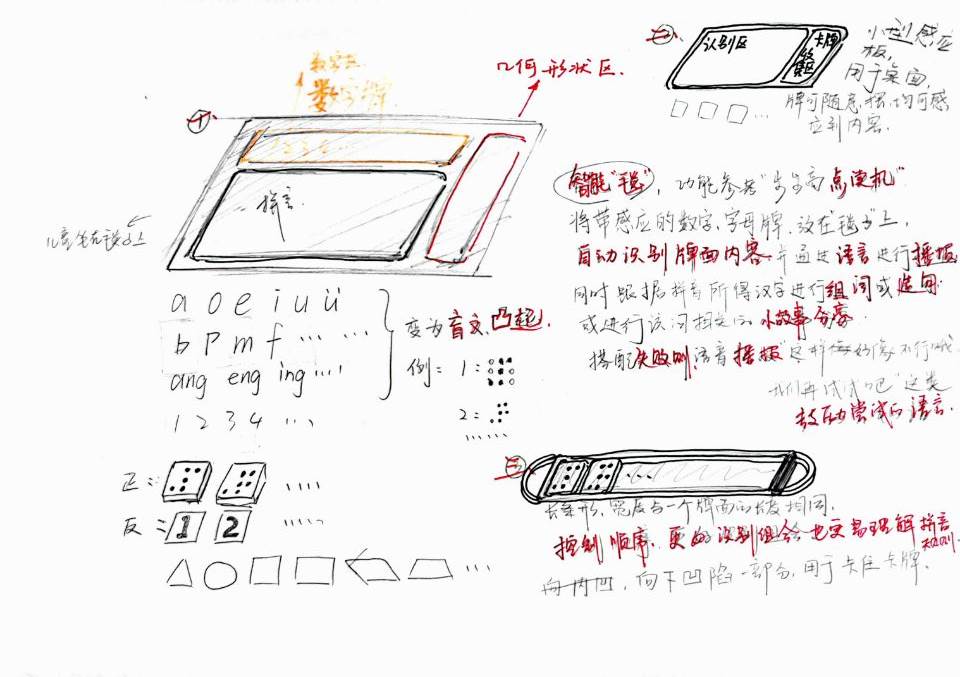 数字牌
几何形状区.
一
1 2 3 4
拼音
儿童坐在毯子上
a o e i u ü
b p m f ……
ang eng ing ……
1 2 3 4 …
变为盲文,凸起.
例: 1:
2:
……
正:
反: 1 2 ……
二
识别区
卡牌
收集区
小型感应
板,
用于桌面,
牌可随意摆,均可感
应到内容.
智能"毯",功能参考"步步高点读机"
将带感应的数字,字母牌,放在"毯子"上,
自动识别牌面内容并通过语言进行播报
同时根据拼音所得汉字进行组词或造句
或进行该词相关的小故事分享.
搭配失败则语音播报"这样好像不行哦
我们再试试吧"这类
鼓励尝试的语言.
三
长条形,宽度与一个牌面的长度相同.
控制顺序.更好识别组合,也更易理解拼音
规则.
向内凹,向下凹陷一部分,用于卡住卡牌.